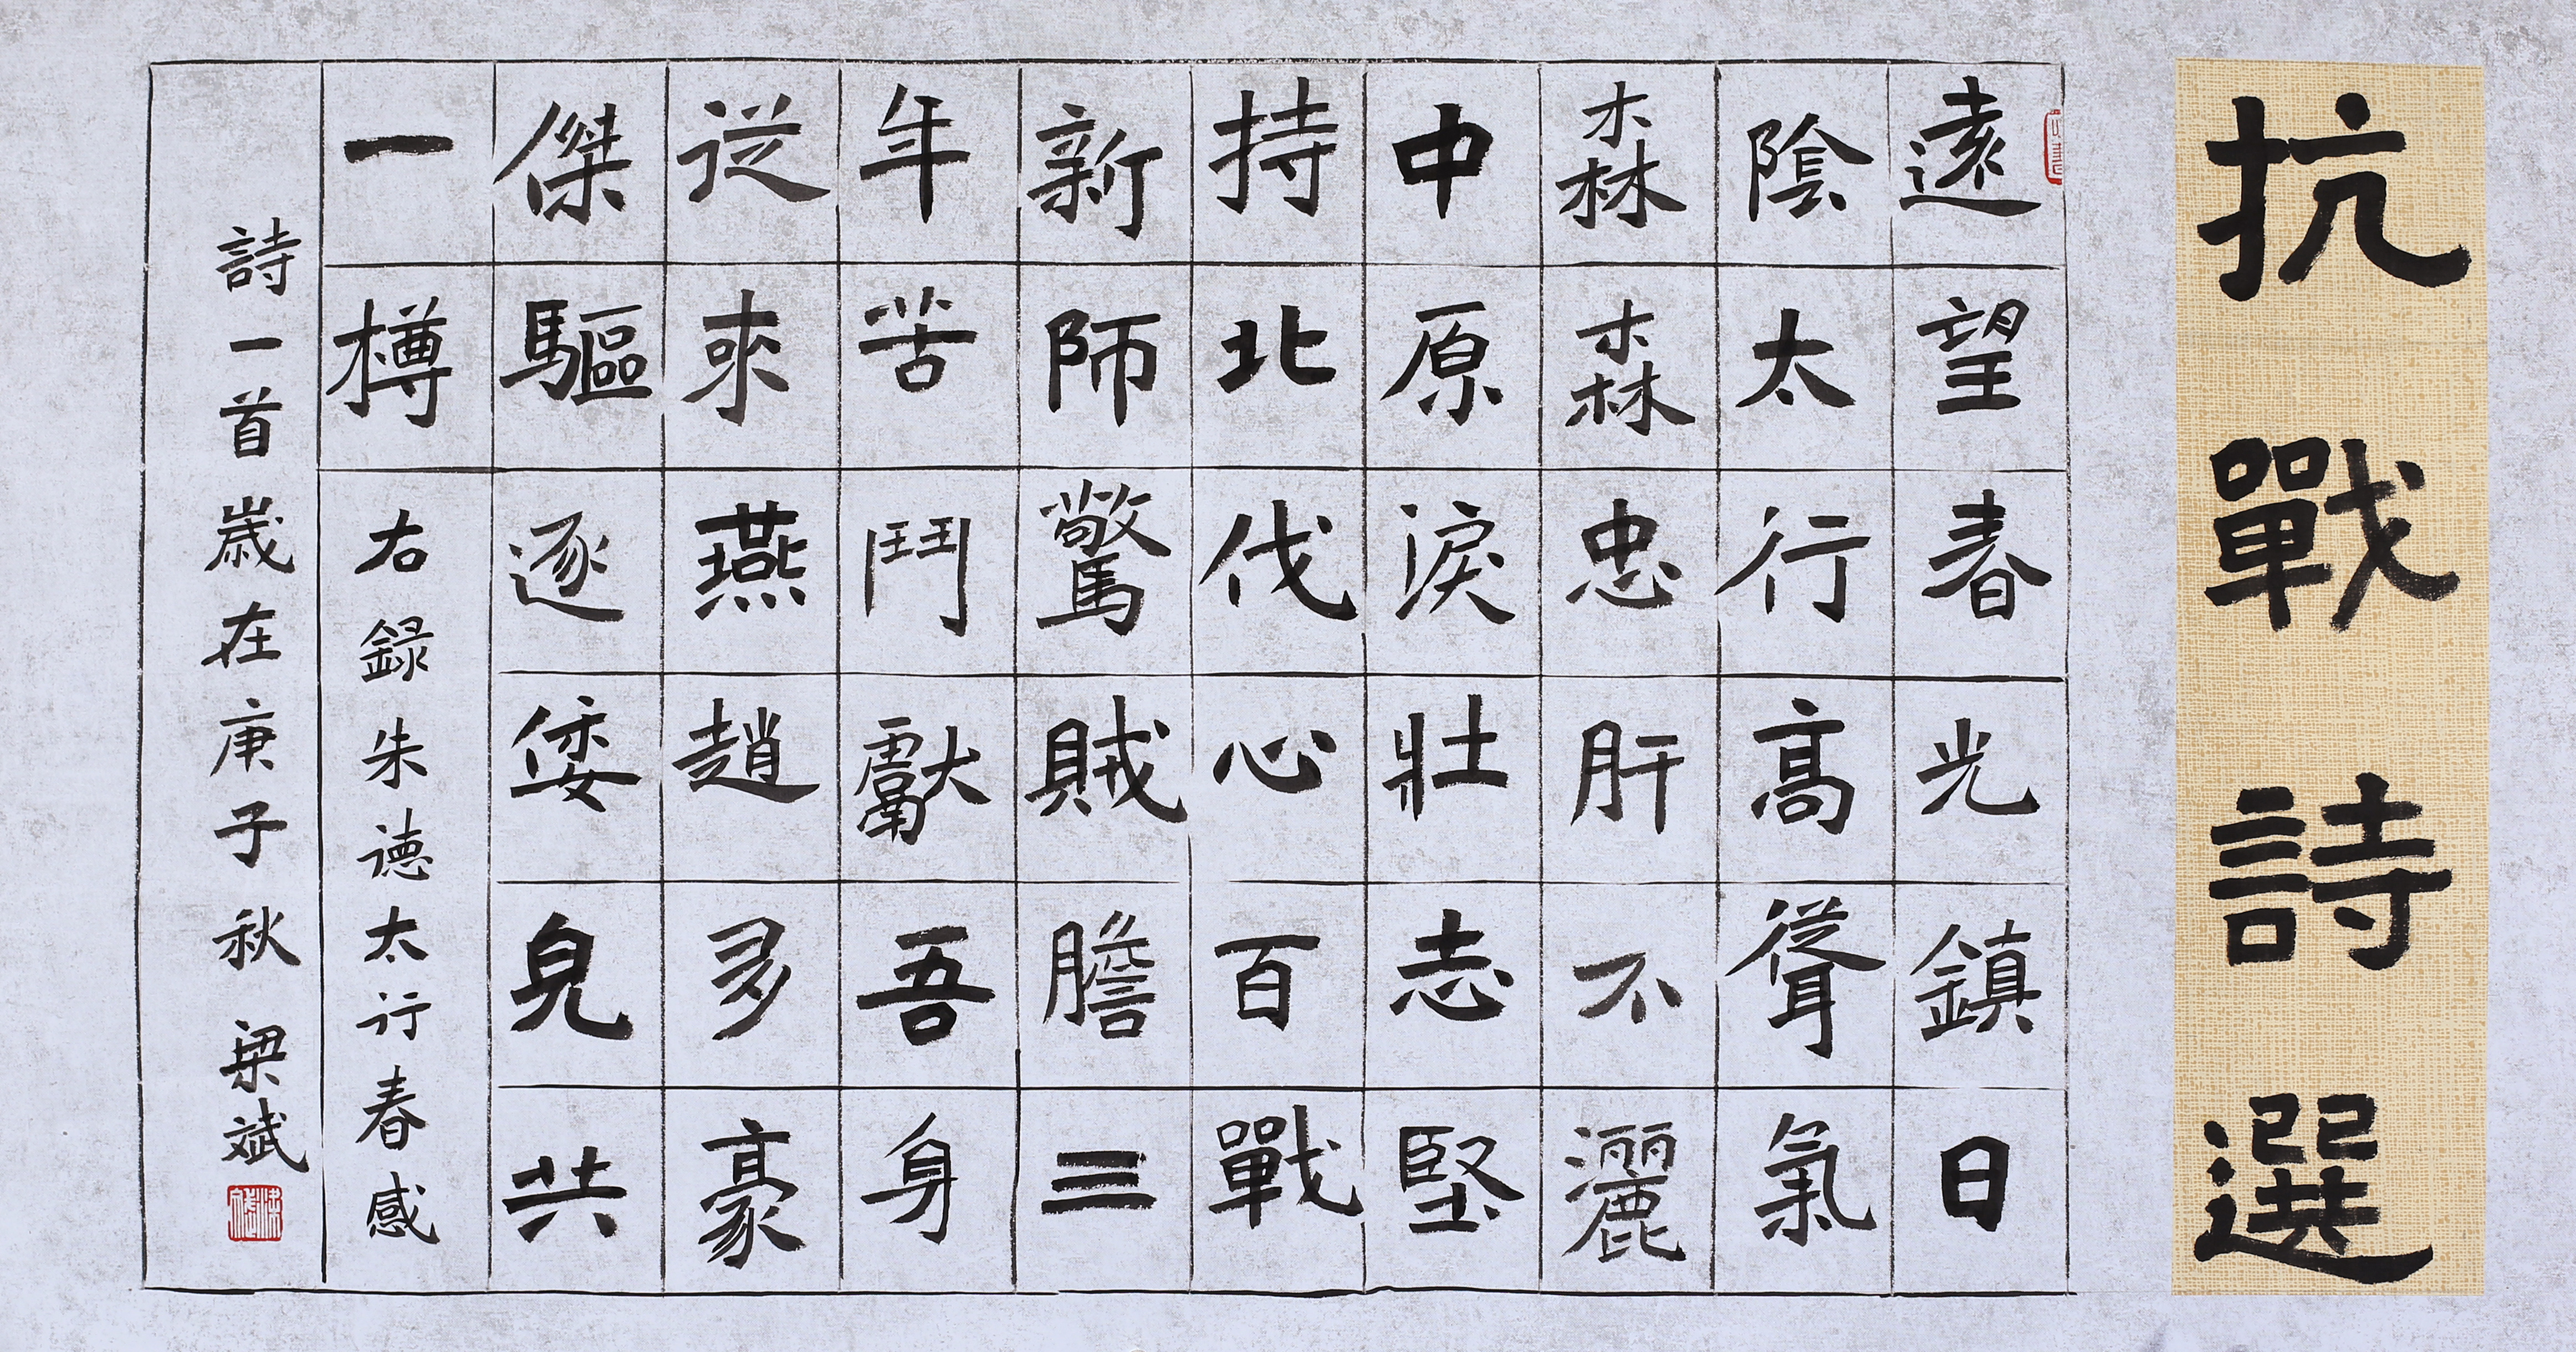 抗戰詩選
遠望春光鎮日
陰太行高聳氣
森森忠肝不灑
中原淚壯志堅
持北伐心百戰
新師驚賊膽三
年苦鬥獻吾身
從來燕趙多豪
傑驅逐倭兒共
一樽
右錄朱德太行春感
詩一首歲在庚子秋 梁斌